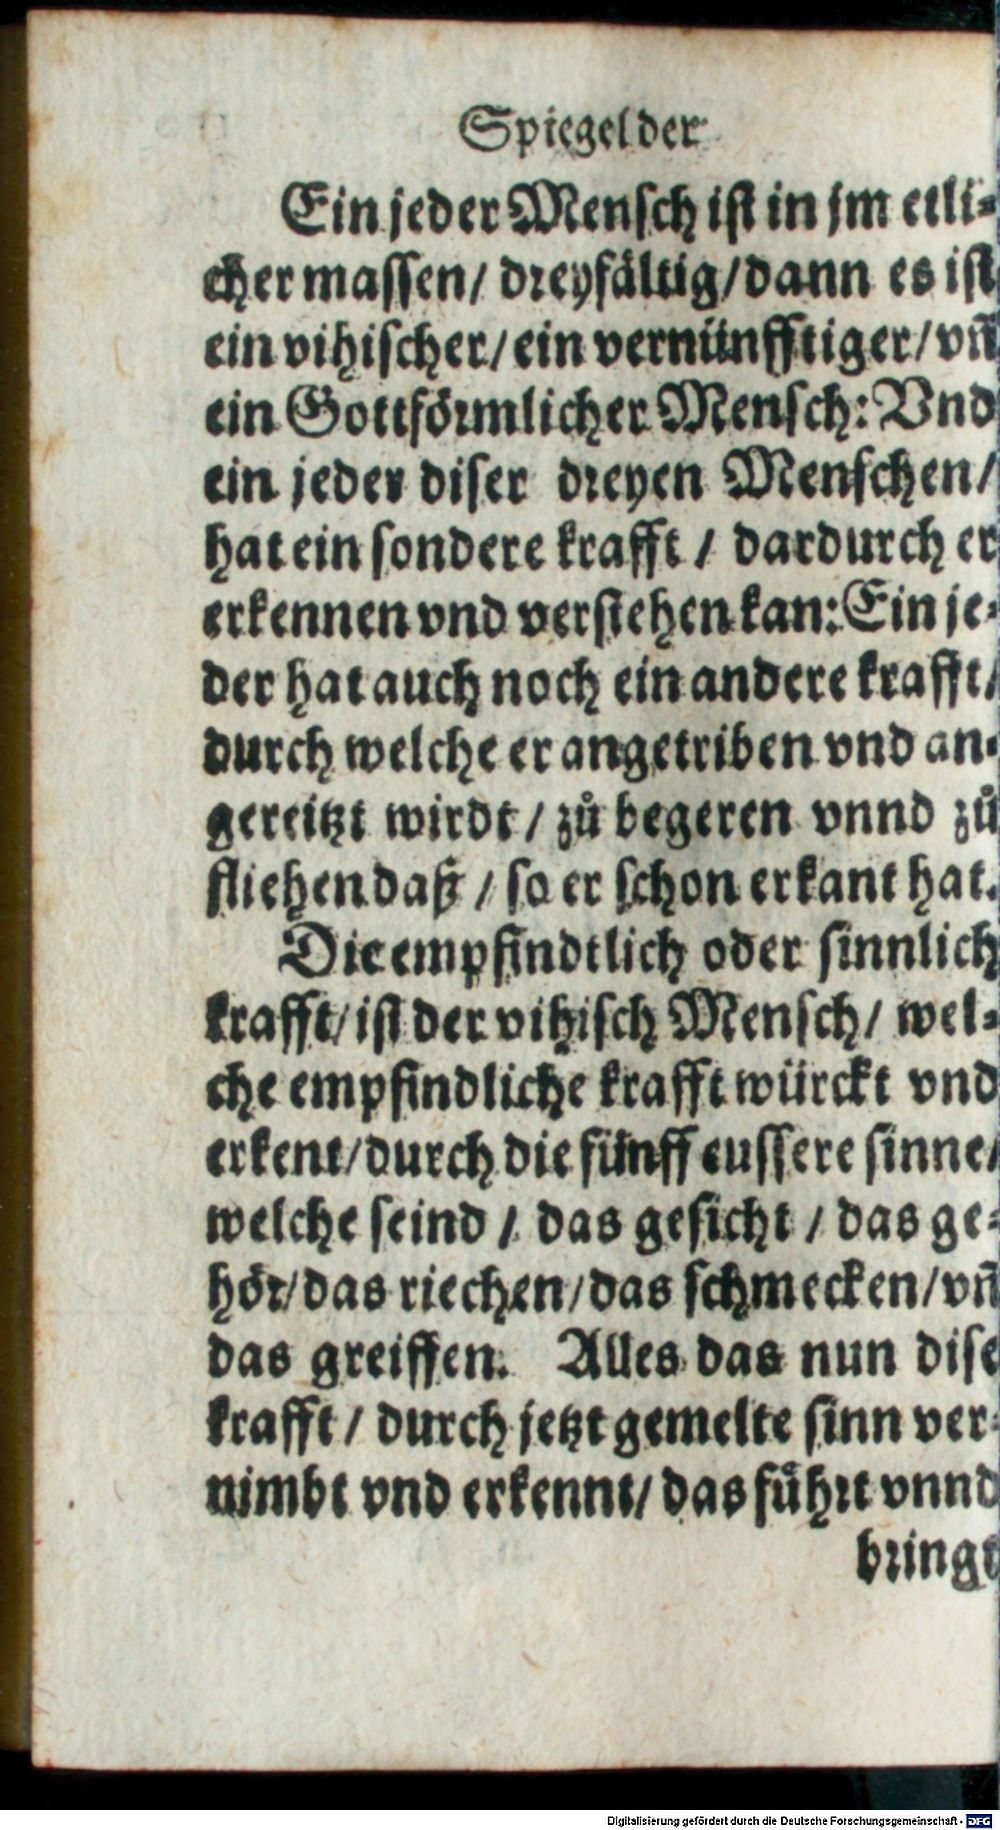 Spiegel der
Ein jeder Mensch ist in jm etli-
cher massen/ dreyfältig/ dann es ist
ein vihischer/ ein vernünfftiger/ vñ
ein Gottförmlicher Mensch: Vnd
ein jeder diser dreyen Menschen/
hat ein sondere krafft / dardurch er
erkennen vnd verstehen kan: Ein je-
der hat auch noch ein andere krafft/
durch welche er angetriben vnd an-
gereitzt wirdt / zů begeren vnnd zů
fliehen daß / so er schon erkant hat.
Die empfindtlich oder sinnlich
krafft/ ist der vihisch Mensch/ wel-
che empfindliche krafft würckt vnd
erkent/ durch die fünff eussere sinne/
welche seind / das gesicht / das ge-
hör/ das riechen/ das schmecken/ vñ
das greiffen. Alles das nun dise
krafft / durch jetzt gemelte sinn ver-
nimbt vnd erkennt/ das führt vnnd
bringt
Digitalisierung gefördert durch die Deutsche Forschungsgemeinschaft - DFG